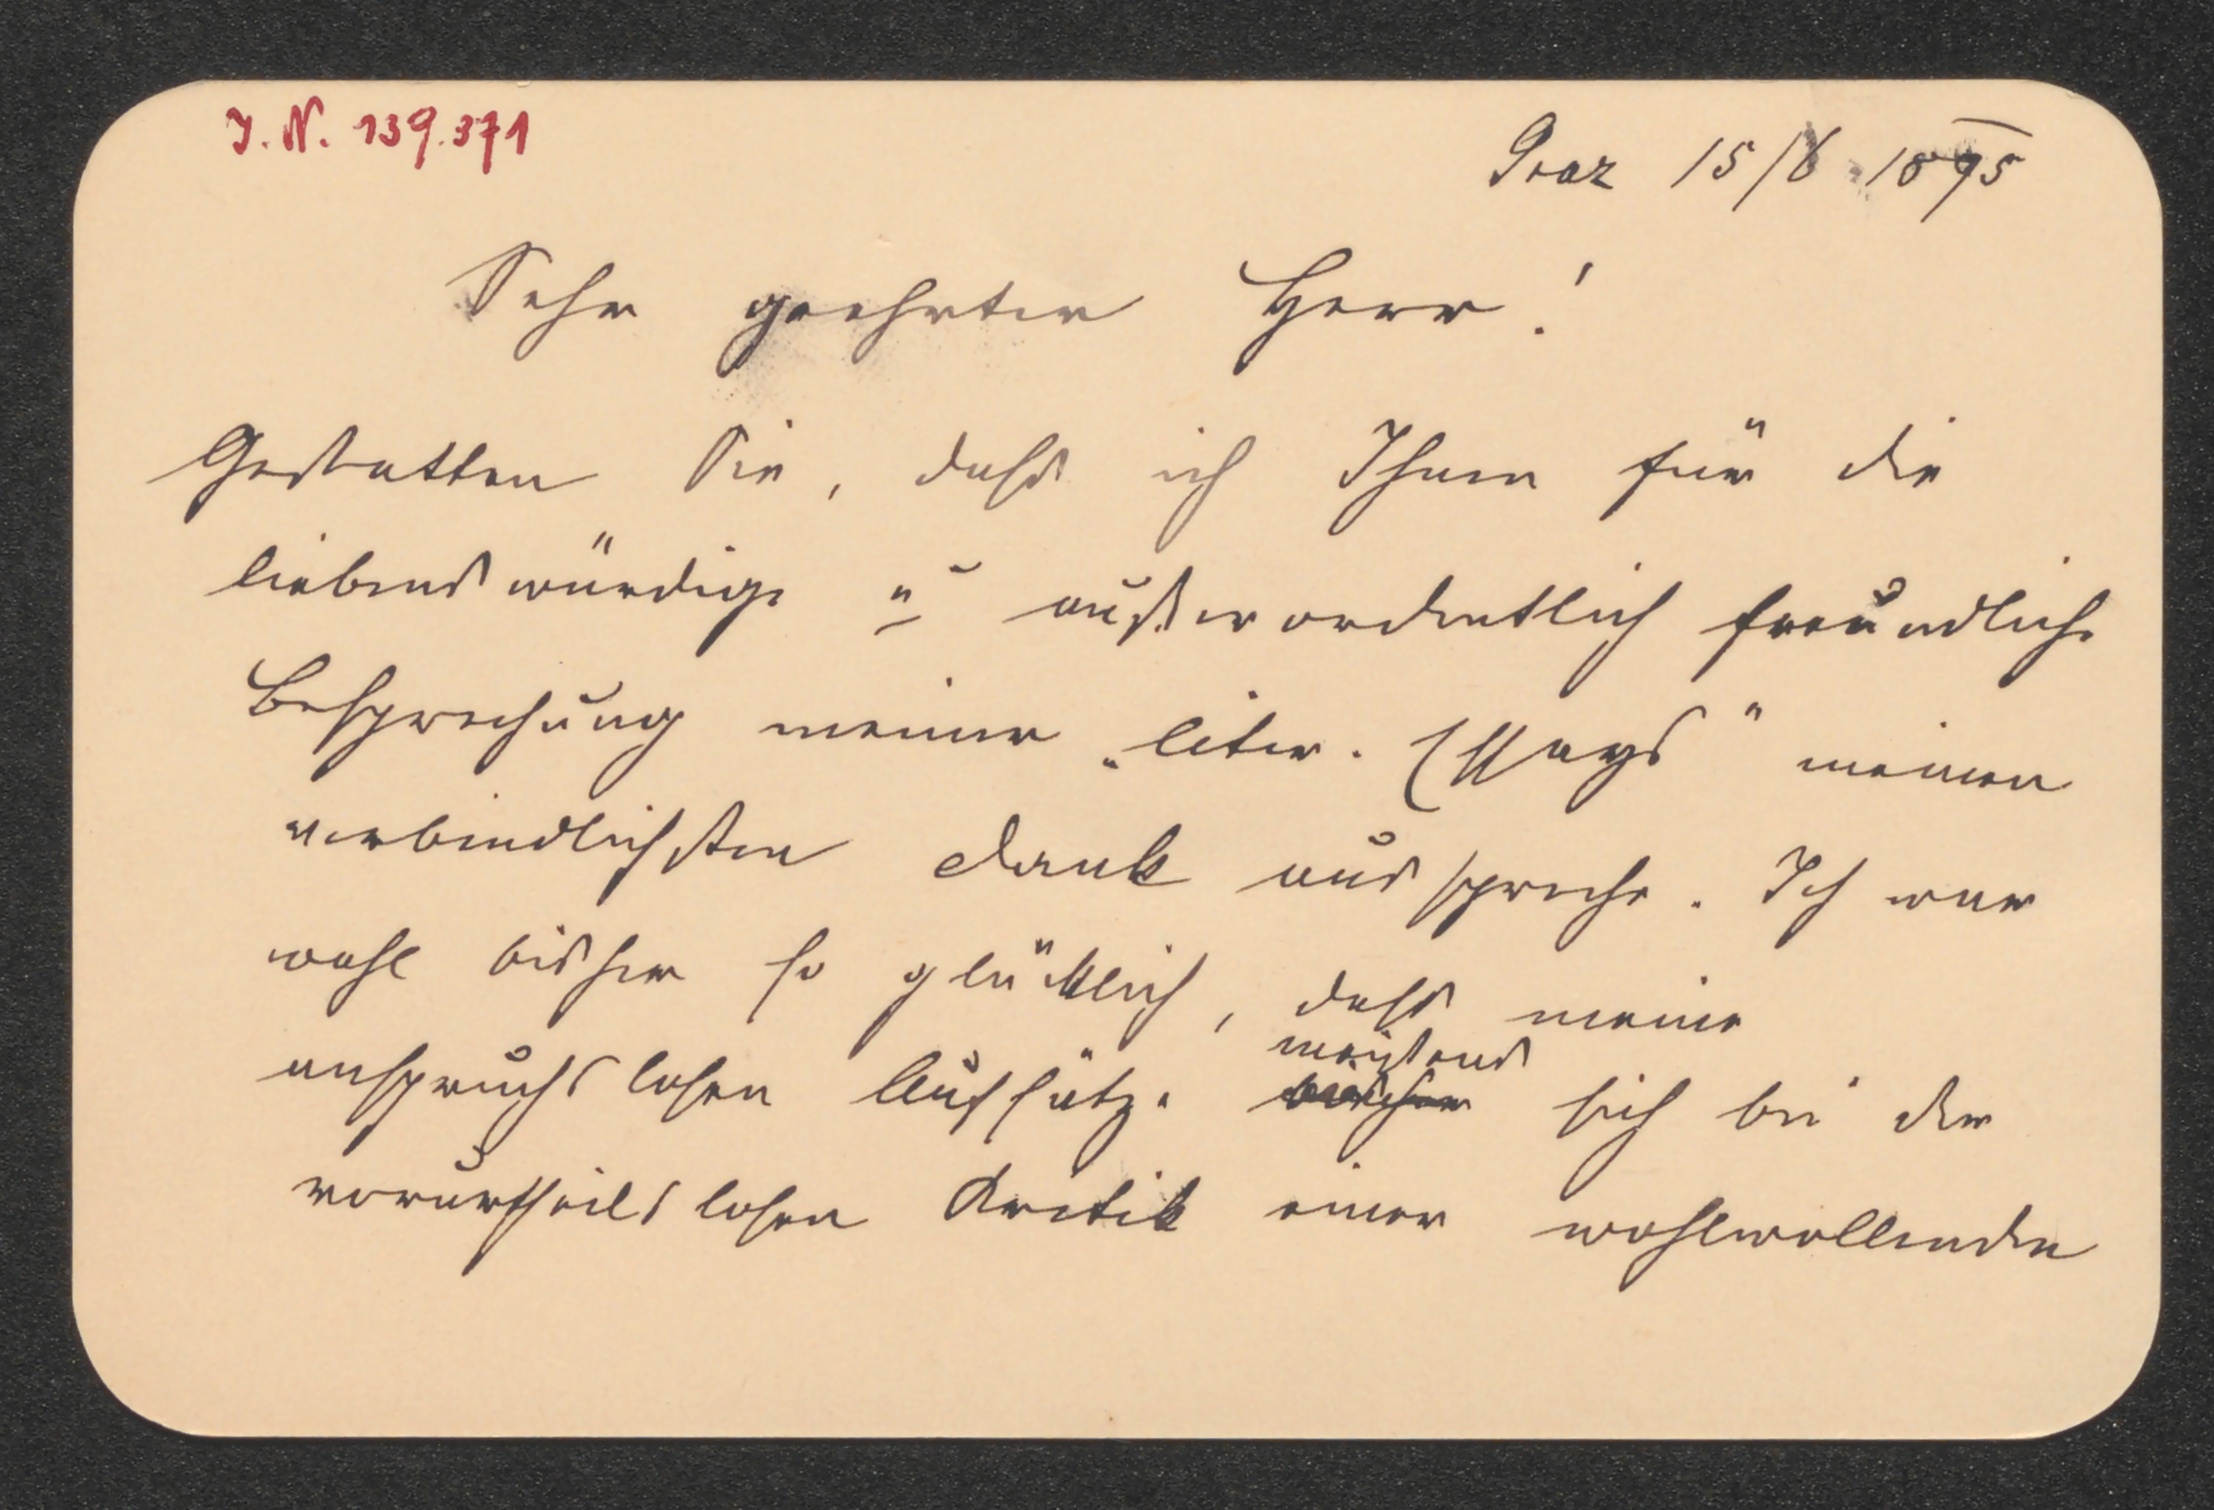 I. N. 139.371
Graz 15/6 1895
Sehr geehrter Herr!
Gestatten Sie, dass ich Ihnen für die
liebenswürdige u außerordentlich freundliche
Besprechung meiner „liter. Essays" meinen
verbindlichsten Dank ausspreche. Ich war
wohl bisher so glücklich, dass meine
meistens
anspruchslosen Aufsätze bisher sich bei der
vorurtheilslosen Kritik einer wohlwollenden